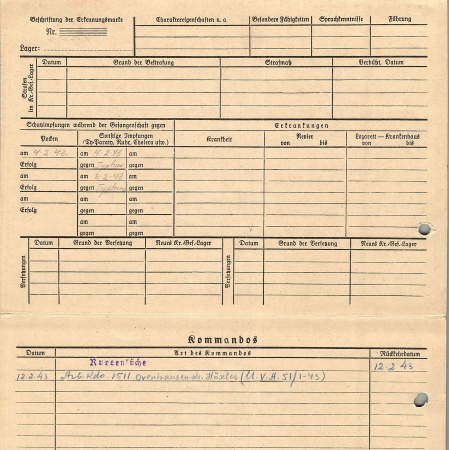 Beschriftung der Erkennungsmarke Charaktereigenschaften u. a. Besondere Fähigkeiten Sprachkenntnisse Führung
Nr.
Lager:
Strafen im Kr.-Gef.-Lager Datum Grund der Bestrafung Strafmaß Verbüßt, Datum
Schutzimpfungen während der Gefangenschaft gegen Erkrankungen
Pocken Sonstige Impfungen (Ty-Paraty, Ruhr, Cholera usw.) Krankheit Revier von bis Lazarett — Krankenhaus von bis
am 4.2.43 am 4.2.43
Erfolg gegen gegen
am am 8.2.43 am
Erfolg gegen gegen
am am am
Erfolg gegen gegen
am am
gegen gegen
Versetzungen Datum Grund der Versetzung Neues Kr.-Gef.-Lager Versetzungen Datum Grund der Versetzung Neues Kr.-Gef.-Lager
Kommandos
Datum Art des Kommandos Rückkehrdatum
12 2 43
12.2.43 Arb Kdo. 1511 Ovenhausen Kr. Höxter (lt. V. A. 51/1-43)